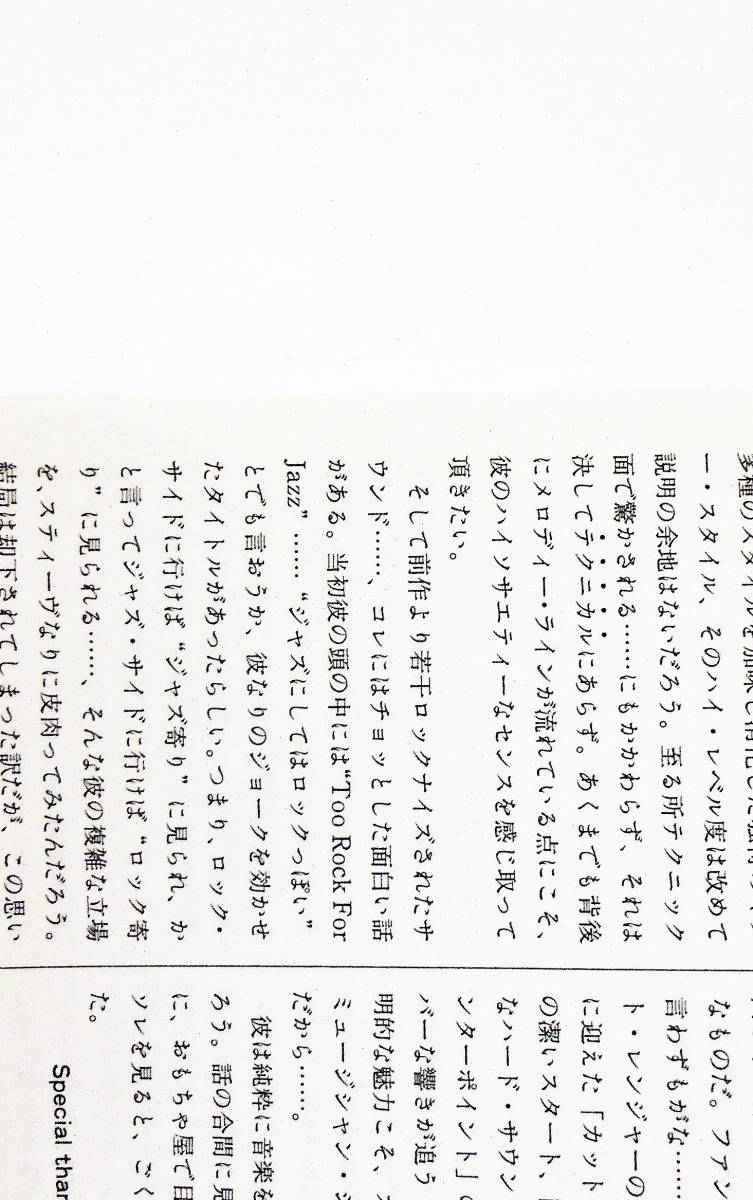 ー・スタイル、そのハイ・レベル度は改めて
説明の余地はないだろう。至る所テクニック
面で驚かされる……にもかかわらず、それは
決してテクニカルにあらず。あくまでも背後
にメロディー・ラインが流れている点にこそ、
彼のハイソサエティーなセンスを感じ取って
頂きたい。
そして前作より若干ロックナイズされたサ
ウンド……、コレにはチョッとした面白い話
がある。当初彼の頭の中には“Too Rock For
Jazz”……“ジャズにしてはロックっぽい”
とでも言おうか、彼なりのジョークを効かせ
たタイトルがあったらしい。つまり、ロック・
サイドに行けば“ジャズ寄り”に見られ、か
と言ってジャズ・サイドに行けば“ロック寄
り”に見られる……、そんな彼の複雑な立場
を、スティーヴなりに皮肉ってみたんだろう。
結局は却下されてしまった訳だが、この思い
なものだ。ファン
言わずもがな……
ト・レンジャーの
に迎えた「カット
の潔いスタート、
なハード・サウン
ンターポイント」
バーな響きが追う
明的な魅力こそ、
ミュージシャン・
だから……。
彼は純粋に音楽を
ろう。話の合間に見
に、おもちゃ屋で目
ソレを見ると、ごく
た。
Special than